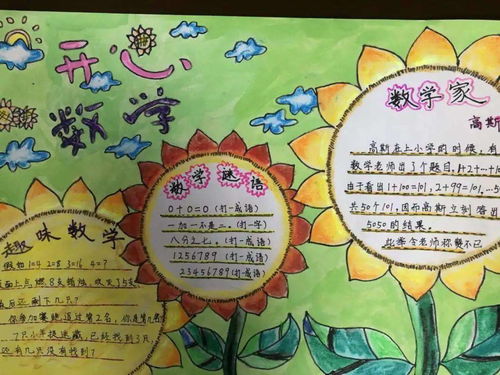 开心
数学
趣味数学
假如1=4 2=8 3=16 4=?
面上点燃8支蜡烛,吹灭了5支
最后还剩下几只?
你参加赛跑追过第2名,你是第几名
7只小羊捉迷藏,已经找到3只,
还有几只没有找到?
数学谜语
0+0=0(打一成语)
一加一不是二。(打一字)
八分之七。(打一成语)
1256789(打一成语)
23456789(打一成语)
数学家
高斯
高斯在上小学的时候,有
数学老师出了个题目,1+2+…+10
由于看出1+100=101,2+99=101,…5
共50个101,因而高斯立刻答出
5050的结果。
此举令老师称赞不已